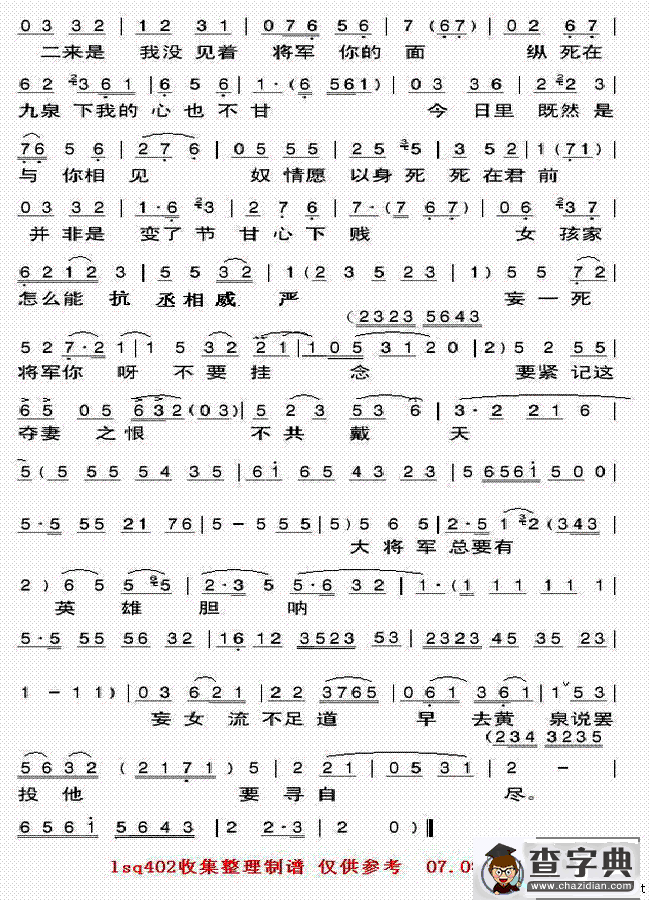 03 32 | 12 31 | 0 7 6 56 | 7 (67) | 02 67 |
二来是 我没见着 将军你的面 纵死在
62 2 3 61 | 65 6 | 1·(6 561) | 03 36 | 2 2 2 3 |
九泉下我的心也不甘 今日里既然是
76 5 6 | 2 7 6 | 05 55 | 25 3 5 | 3 52 | 1 (71) |
与你相见 奴情愿以身死死在君前
03 32 | 1·6 2 3 | 2 7 6 | 7·(7 67) | 06 2 37 |
并非是变了节甘心下贱 女孩家
6 2 1 2 3 | 5 5 32 | 1 (2 3 5 23 | 1) 5 5 7 2 |
怎么能抗丞相威严 妾一死
(2323 5643
5 2 7·2 1 | 1 5 32 21 | 1 05 3120 | 2) 5 2 55 |
将军你呀不要挂念 要紧记这
6 5 05 632 (03) | 5 2 3 53 6 | 3·2 21 6 |
夺妻之恨 不共戴天
5 (5 55 54 35 | 61 65 43 23 | 5 6561 500 |
5·5 55 21 76 | 5 - 5 55 | 5) 5 6 5 | 2·5 1 3 2 (343 |
大将军总要有
2) 6 5 5 6 5 | 2·3 5 5·6 32 | 1·(1 11 11 1 |
英雄胆呐
5·5 55 56 32 | 16 12 3523 53 | 2323 45 35 23 |
1 - 1 1) | 03 621 | 22 3765 | 061 361 | 1 53 |
妾女流不足道 早去黄泉说罢
(234 3235
5632 (2171) | 5 2 21 | 0531 | 2 - |
投他 要寻自尽。
6561 5643 | 2 2·3 | 2 0) ‖
lsq402收集整理制谱 仅供参考 07.0
查字典
www.chazidian.com
t